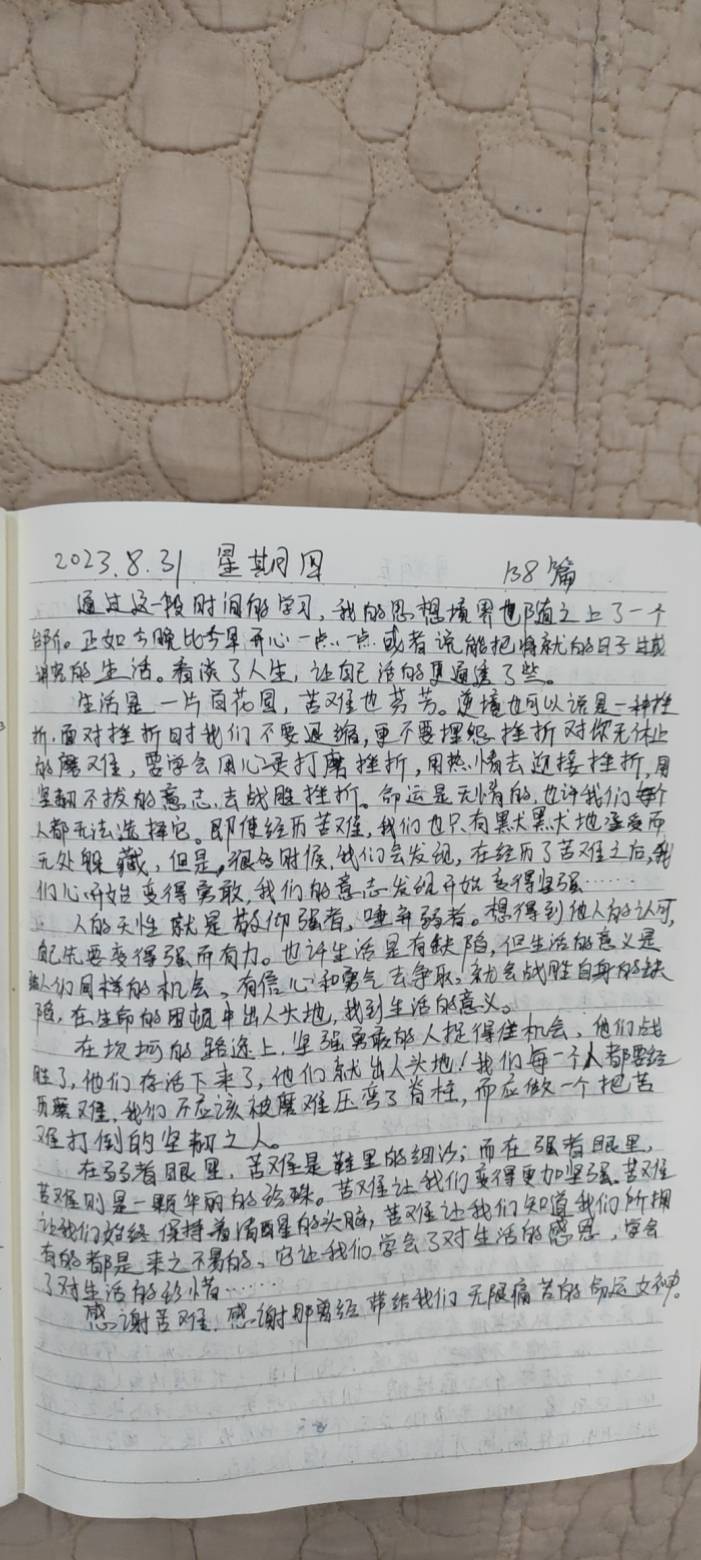 2023.8.31 星期四 138篇
通过这一段时间的学习，我的思想境界也随之上了一个
台阶。正如今晚比今早开心一点一点.或者说能把将就的日子过成
讲究的生活。看淡了人生，让自己活的更通透了些。
生活是一片百花园，苦难也芬芳。逆境也可以说是一种挫
折.面对挫折时我们不要退缩，更不要埋怨挫折对你无休止
的磨难，要学会用心灵打磨挫折，用热情去迎接挫折，用
坚韧不拔的意志去战胜挫折。命运是无情的，也许我们每个
人都无法选择它。即使经历苦难，我们也只有默默地承受而
无处躲藏，但是，很多时候，我们会发现，在经历了苦难之后，我
们心开始变得勇敢，我们的意志发现开始变得坚强……
人的天性就是敬仰强者，唾弃弱者。想得到他人的认可，
自己先要变得强而有力。也许生活是有缺陷，但生活的意义是
给人们同样的机会，有信心和勇气去争取，就会战胜自身的缺
陷，在生命的困顿中出人头地，找到生活的意义。
在坎坷的路途上，坚强勇敢的人捉得住机会，他们战
胜了，他们存活下来了，他们就出人头地！我们每一个人都要经
历磨难，我们不应该被磨难压弯了脊柱，而应做一个把苦
难打倒的坚韧之人。
在弱者眼里，苦难是鞋里的细沙；而在强者眼里，
苦难则是一颗华丽的的珍珠。苦难让我们变得更加坚强。苦难
让我们始终保持着清醒的头脑，苦难让我们知道我们所拥
有的都是来之不易的，它让我们学会了对生活的感恩，学会
了对生活的珍惜……
感谢苦难，感谢那曾经带给我们无限痛苦的命运女神。